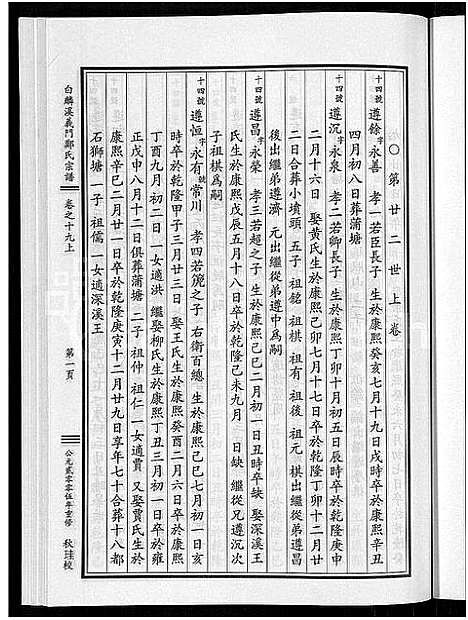 ○第廿二世上卷
十四號 遵餘 字永善 孝一若臣長子 生於康熙癸亥七月十九日戌時卒於康熙辛丑
四月初八日葬蒲塘
十四號 遵沉 字永泉 孝二若卿長子 生於康熙丁卯十月初五日辰時卒於乾隆庚申
二月十六日 娶黃氏生於康熙己卯七月十七日卒於乾隆丁卯十二月廿
二日合葬小墳頭 五子 祖銘 祖棋 祖有 祖後 祖元 棋出繼從弟遵昌
後出繼弟遵濟 元出繼從弟遵中爲嗣
十四號 遵昌 字永榮 孝三若超之子 生於康熙己巳二月初一日丑時卒缺 娶深溪王
氏生於康熙戊辰五月十八日卒於乾隆己未九月 日缺 繼從兄遵沉次
子祖棋爲嗣
十四號 遵恒 字永有 號常川 孝四若箎之子 右衛百總 生於康熙己巳七月初一日亥
時卒於乾隆甲子三月廿三日 娶王氏生於康熙癸酉二月六日卒於康熙
丁酉九月初二日 一女適洪 繼娶柳氏生於康熙丁丑三月初一日卒於雍
正戊申八月十二日俱葬蒲塘 二子 祖仲 祖仁 一女適賈 又娶賈氏生於
康熙辛巳二月廿一日卒於乾隆庚寅十二月廿九日享年七十合葬十八都
石獅塘 一子 祖儒 一女適深溪王
白麟溪義門鄭氏宗譜
卷之十九上
第一頁
公元貳零零伍年重修
秋珪校